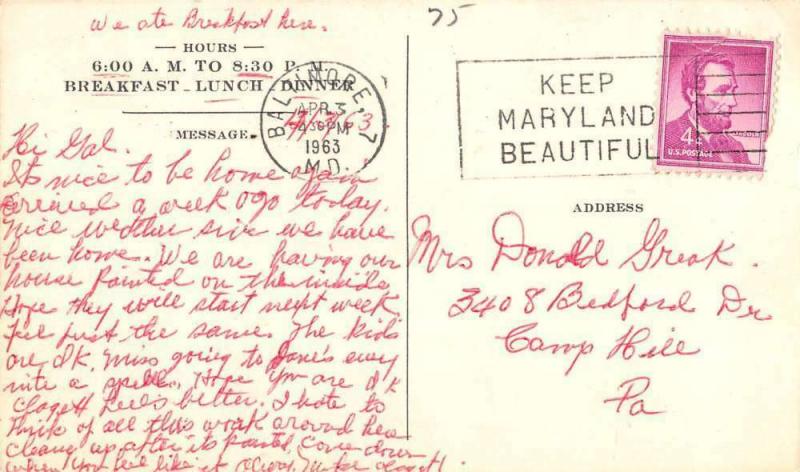 We ate Breakfast here.
75
— HOURS —
6:00 A. M. TO 8:30 P. M.
BREAKFAST - LUNCH - DINNER
MESSAGE
4/3/63
BALTIMORE, 7
APR 3
430 PM
1963
M.D.
KEEP
MARYLAND
BEAUTIFUL
4¢
U.S. POSTAGE
Hi Gal.
Its nice to be home again
arrived a week ago today.
Nice weather since we have
been home. We are having our
house painted on the inside
Hope they will start next week.
feel just the same. The kids
are O'K. Miss going to Jane's every
nite a spell. Hope you are O'K
Clagett feels better. I hate to
think of all this work around here
cleaning up after its painted, Come down
when you feel like it
ADDRESS
Mrs Donald Greak.
3408 Bedford Dr
Camp Hill
Pa